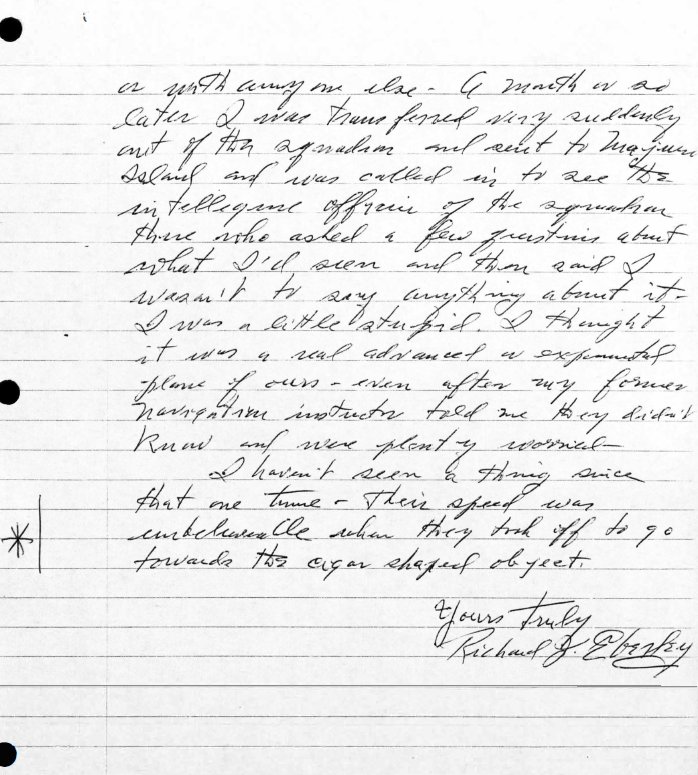 or with anyone else - A month or so
later I was transferred very suddenly
out of the squadron and sent to Majuro
Island and was called in to see the
intelligence officer of the squadron
there who asked a few questions about
what I'd seen and then said I
wasn't to say anything about it -
I was a little stupid. I thought
it was a real advanced or experimental
plane of ours - even after my former
navigation instructor told me they didn't
know and were plenty worried -
I haven't seen a thing since
that one time - Their speed was
unbelievable when they took off to go
towards the cigar shaped object.
Yours Truly
Richard J.